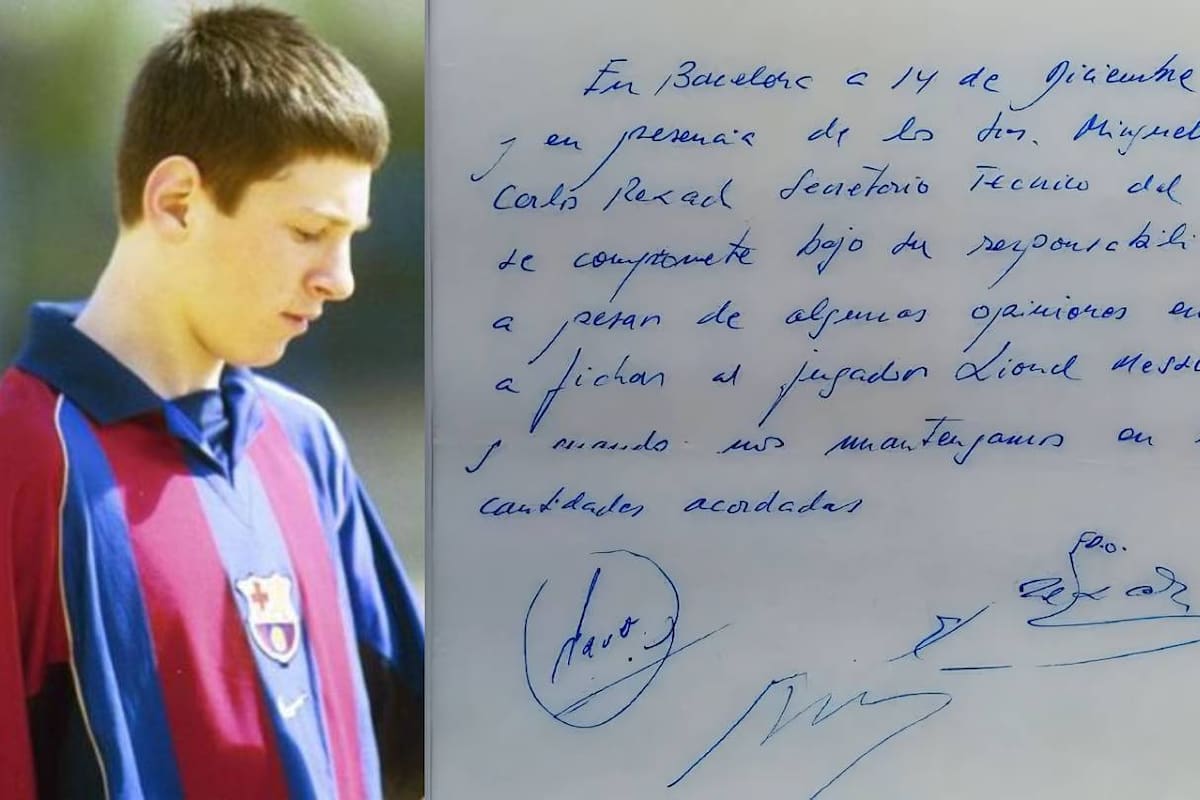 En Barcelona a 14 de Diciembre
y en presencia de los Srs. Minguel
Carlos Rexach Secretario Tecnico del
se compromete bajo su responsabili
a pesar de algunas opiniones en
a fichar al jugador Lionel Messi
y cuando nos mantengamos en
cantidades acordadas